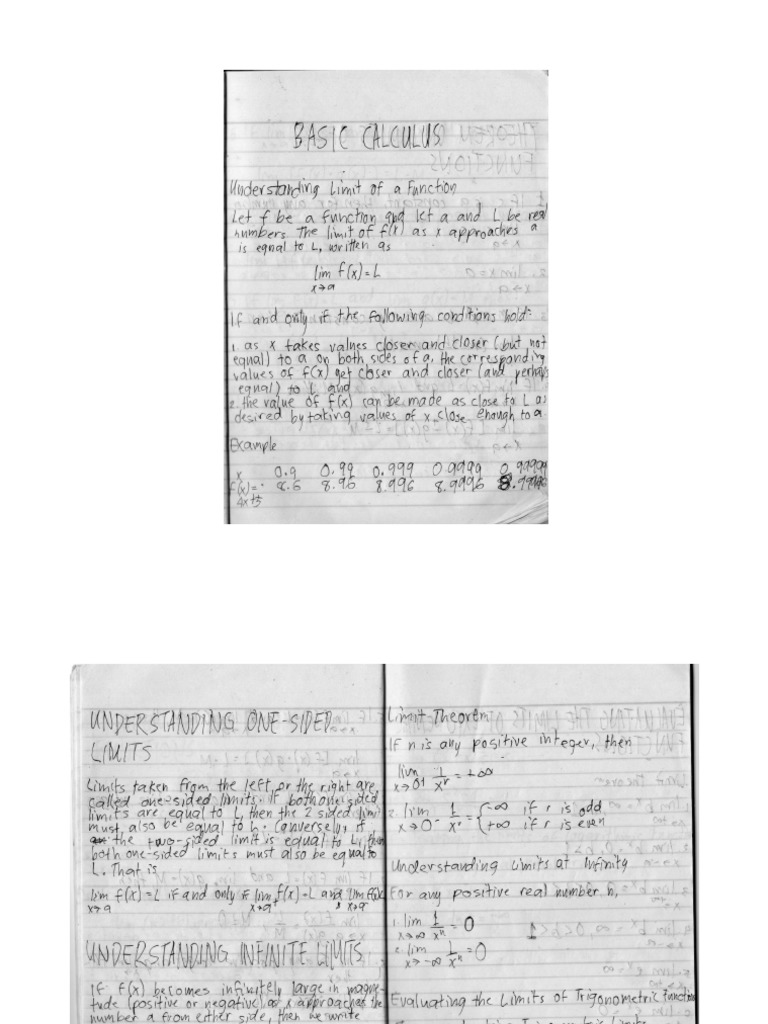 BASIC CALCULUS
Understanding Limit of a Function
Let f be a function and let a and L be real
numbers. The limit of f(x) as x approaches a
is equal to L, written as
lim f(x) = L
x→a
If and only if the following conditions hold:
1. as x takes values closer and closer (but not
equal) to a on both sides of a, the corresponding
values of f(x) get closer and closer (and perhaps
equal) to L and
2. the value of f(x) can be made as close to L as
desired by taking values of x close enough to a.
Example
x 0.9 0.99 0.999 0.9999 0.99999
f(x)= 8.6 8.96 8.996 8.9996
4x+5
UNDERSTANDING ONE-SIDED
LIMITS
Limits taken from the left or the right are
called one-sided limits. If both one sided
limits are equal to L, then the 2 sided limit
must also be equal to L. Conversely, if
the two-sided limit is equal to L, then
both one-sided limits must also be equal to
L. That is
lim f(x)=L if and only if lim f(x)=L and lim f(x)
x→a x→a⁺ x→a⁻
UNDERSTANDING INFINITE LIMITS
If f(x) becomes infinitely large in magni-
tude (positive or negative) as x approaches the
number a from either side, then we write
Limit Theorem
If n is any positive integer, then
lim 1/xʳ = +∞
x→0⁺
2. lim 1/xʳ = {-∞ if r is odd
x→0⁻ {+∞ if r is even
Understanding Limits at Infinity
For any positive real number n,
1. lim 1/xⁿ = 0
x→∞
2. lim 1/xⁿ = 0
x→-∞
Evaluating the Limits of Trigonometric Function